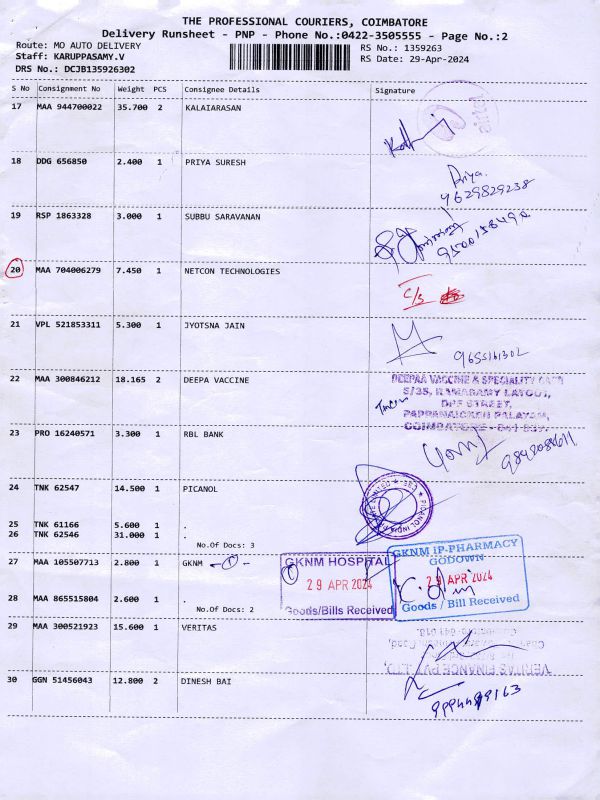 THE PROFESSIONAL COURIERS, COIMBATORE
Delivery Runsheet - PNP - Phone No.:0422-3505555 - Page No.:2
Route: MO AUTO DELIVERY
RS No.: 1359263
Staff: KARUPPASAMY.V
RS Date: 29-Apr-2024
DRS No.: DCJB135926302
S No Consignment No Weight PCS Consignee Details Signature
17 MAA 944700022 35.700 2 KALAIARASAN
airtel
18 DDG 656850 2.400 1 PRIYA SURESH
Priya.
9629829238
19 RSP 1863328 3.000 1 SUBBU SARAVANAN
20 MAA 704006279 7.450 1 NETCON TECHNOLOGIES
C/S
21 VPL 521853311 5.300 1 JYOTSNA JAIN
9655161302
22 MAA 300846212 18.165 2 DEEPA VACCINE
DEEPAA VACCINE & SPECIALITY
5/35, RAMASAMY LAYOUT,
STREET,
PAPPANAICKEN PALAYAM,
COIMBATORE
23 PRO 16240571 3.300 1 RBL BANK
24 TNK 62547 14.500 1 PICANOL
PICANOL INDIA
25 TNK 61166 5.600 1 .
26 TNK 62546 31.000 1 .
No.Of Docs: 3
27 MAA 105507713 2.800 1 GKNM
GKNM HOSPITAL
29 APR 2024
Goods/Bills Received
GKNM IP-PHARMACY
GODOWN
29 APR 2024
Goods / Bill Received
28 MAA 865515804 2.600 1 .
No.Of Docs: 2
29 MAA 300521923 15.600 1 VERITAS
VERITAS FINANCE PVT. LTD.
30 GGN 51456043 12.800 2 DINESH BAI